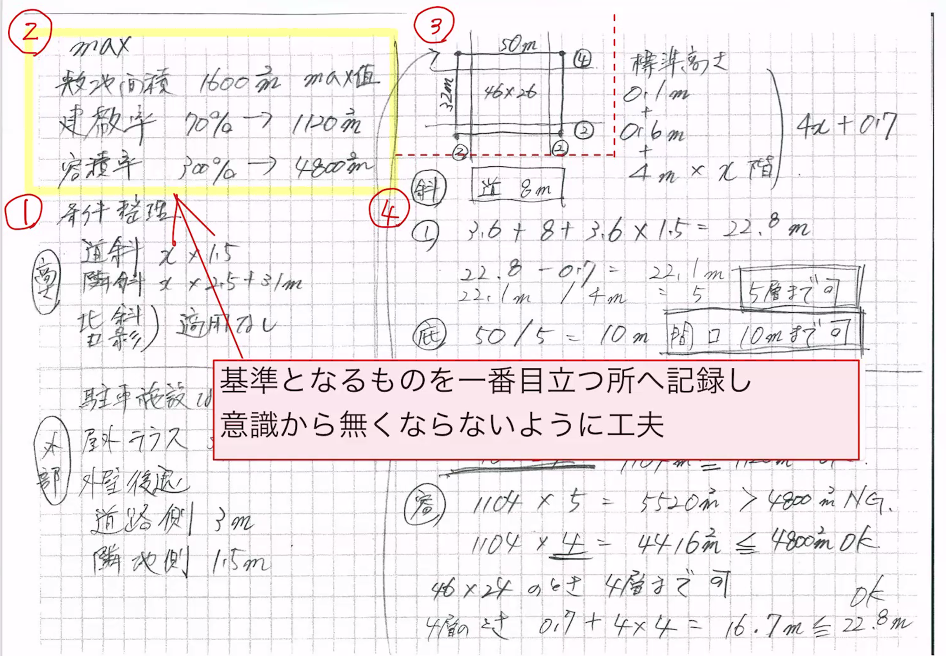 ②
max
敷地面積 1600㎡ max値
建敷率 70%→ 1120㎡
容積率 300%→ 4800㎡
①
条件整理
高
道斜 x×1.5
隣斜 x×2.5+31m
北斜
日影) 適用なし
駐車施設
外部
屋外テラス
外壁後退
道路側 3m
隣地側 1.5m
基準となるものを一番目立つ所へ記録し
意識から無くならないように工夫
③
50m
④
32m
46×26
②
②
②
標準高さ
0.1m
+
0.6m
+
4m × x階
4x+0.7
④
斜 道 8m
① 3.6+8+3.6×1.5=22.8m
22.8-0.7= 22.1m
22.1m / 4m = 5 5層まで可
庇 50/5= 10m 間口 10mまで可
容 1104×5=5520㎡>4800㎡NG.
1104×4=4416㎡≦4800㎡OK
46×24 のとき 4層まで可
OK
4層のとき 0.7+4×4=16.7m≦22.8m